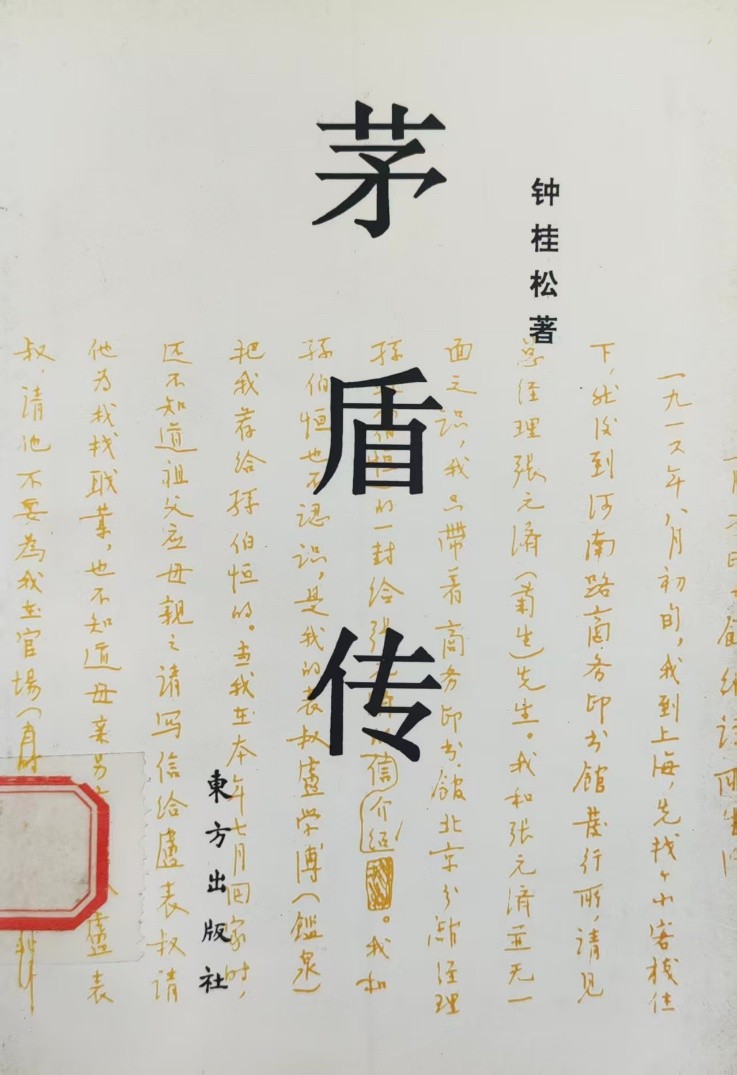 茅盾传
钟桂松著
東方出版社
一九一六年八月初旬，我到上海，先找个小客栈住
下，然后到河南路商务印书馆发行所，请见
总经理张元济（菊生）先生。我和张元济并无一
面之识，我只带着商务印书馆北京分馆经理
孙伯恒的一封给张信介绍。我和
孙伯恒也不认识，是我的表叔盧学溥（鑑泉）
把我荐给孫伯恒的。当我在本年七月回家时，
还不知道祖父应母親之请写信给盧表叔请
他为我找职業，也不知道母亲另盧表
叔，请他不要為我在官場（